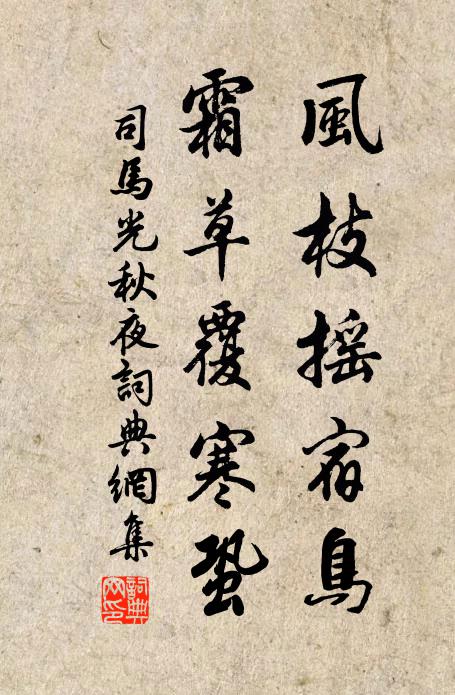 風枝搖宿鳥
霜草覆寒蛩
司馬光秋夜詞典網集
詞典网印